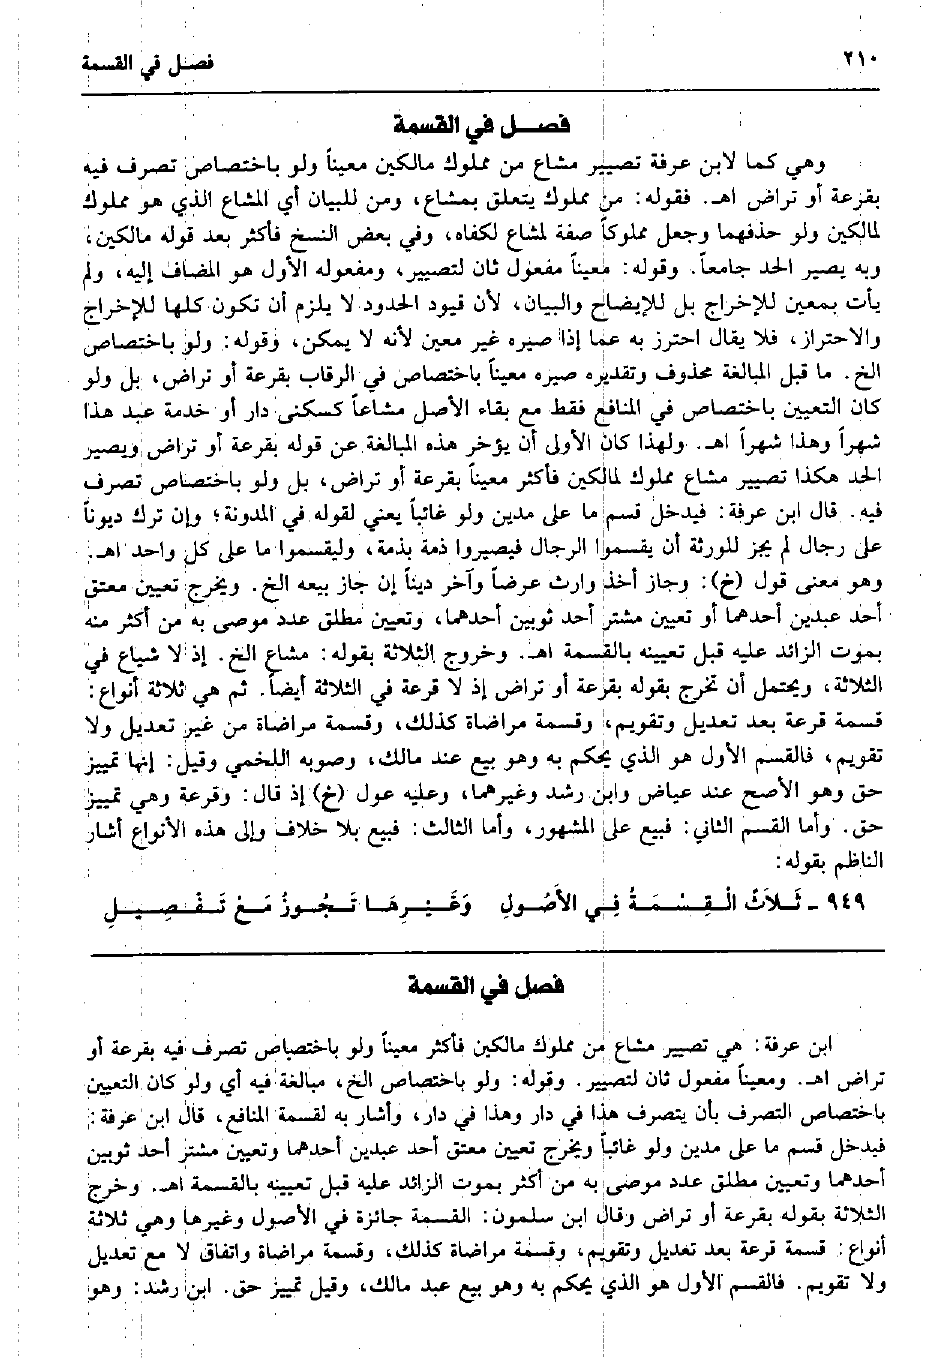 ٢١٠
فصل في القسمة
فصــل في القسمة
وهي كما لابن عرفة تصيير مشاع من مملوك مالكين معيناً ولو باختصاص تصرف فيه
بقرعة أو تراض اهـ. فقوله: من مملوك يتعلق بمشاع، ومن للبيان أي المشاع الذي هو مملوك
لمالكين ولو حذفهما وجعل مملوكاً صفة لمشاع لكفاه، وفي بعض النسخ فأكثر بعد قوله مالكين،
وبه يصير الحد جامعاً. وقوله: معيناً مفعول ثان لتصيير، ومفعوله الأول هو المضاف إليه، ولم
يأت بمعين للإخراج بل للإيضاح والبيان، لأن قيود الحدود لا يلزم أن تكون كلها للإخراج
والاحتراز، فلا يقال احترز به عما إذا صيره غير معين لأنه لا يمكن، وقوله: ولو باختصاص
الخ. ما قبل المبالغة محذوف وتقديره صيره معيناً باختصاص في الرقاب بقرعة أو تراض، بل ولو
كان التعيين باختصاص في المنافع فقط مع بقاء الأصل مشاعاً كسكنى دار أو خدمة عبد هذا
شهراً وهذا شهراً اهـ. ولهذا كان الأولى أن يؤخر هذه المبالغة عن قوله بقرعة أو تراض ويصير
الحد هكذا تصيير مشاع مملوك لمالكين فأكثر معيناً بقرعة أو تراض، بل ولو باختصاص تصرف
فيه. قال ابن عرفة: فيدخل قسم ما على مدين ولو غائباً يعني لقوله في المدونة؛ وإن ترك ديوناً
على رجال لم يجز للورثة أن يقسموا الرجال فيصيروا ذمة بذمة، وليقسموا ما على كل واحد اهـ.
وهو معنى قول (خ): وجاز أخذ وارث عرضاً وآخر ديناً إن جاز بيعه الخ. ويخرج تعيين معتق
أحد عبدين أحدهما أو تعيين مشتر أحد ثوبين أحدهما، وتعيين مطلق عدد موصى به من أكثر منه
بموت الزائد عليه قبل تعيينه بالقسمة اهـ. وخروج الثلاثة بقوله: مشاع الخ. إذ لا شياع في
الثلاثة، ويحتمل أن تخرج بقوله بقرعة أو تراض إذ لا قرعة في الثلاثة أيضاً. ثم هي ثلاثة أنواع:
قسمة قرعة بعد تعديل وتقويم، وقسمة مراضاة كذلك، وقسمة مراضاة من غير تعديل ولا
تقويم، فالقسم الأول هو الذي يحكم به وهو بيع عند مالك، وصوبه اللخمي وقيل: إنها تمييز
حق وهو الأصح عند عياض وابن رشد وغيرهما، وعليه عول (خ) إذ قال: وقرعة وهي تمييز
حق. وأما القسم الثاني: فبيع على المشهور، وأما الثالث: فبيع بلا خلاف وإلى هذه الأنواع أشار
الناظم بقوله:
٩٤٩ ـ ثَــلاَثٌ الْـقِـسْـمَـةُ فِــي الأُصُـولِ وَغَـيْـرِهَـا تَـجُـوزُ مَـعْ تَـفْـصِـيـلِ
فصل في القسمة
ابن عرفة: هي تصيير مشاع من مملوك مالكين فأكثر معيناً ولو باختصاص تصرف فيه بقرعة أو
تراض اهـ. ومعيناً مفعول ثان لتصيير. وقوله: ولو باختصاص الخ، مبالغة فيه أي ولو كان التعيين
باختصاص التصرف بأن يتصرف هذا في دار وهذا في دار، وأشار به لقسمة المنافع، قال ابن عرفة:
فيدخل قسم ما على مدين ولو غائباً ويخرج تعيين معتق أحد عبدين أحدهما وتعيين مشتر أحد ثوبين
أحدهما وتعيين مطلق عدد موصى به من أكثر بموت الزائد عليه قبل تعيينه بالقسمة اهـ. وخرج
الثلاثة بقوله بقرعة أو تراض وقال ابن سلمون: القسمة جائزة في الأصول وغيرها وهي ثلاثة
أنواع: قسمة قرعة بعد تعديل وتقويم، وقسمة مراضاة كذلك، وقسمة مراضاة واتفاق لا مع تعديل
ولا تقويم. فالقسم الأول هو الذي يحكم به وهو بيع عبد مالك، وقيل تمييز حق. ابن رشد: وهو